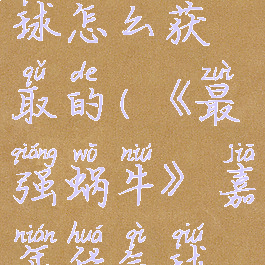 球怎么获
qǔ de zuì
取的(《最
qiáng wō niú jiā
强蜗牛》嘉
nián huá qì qiú
年华气球